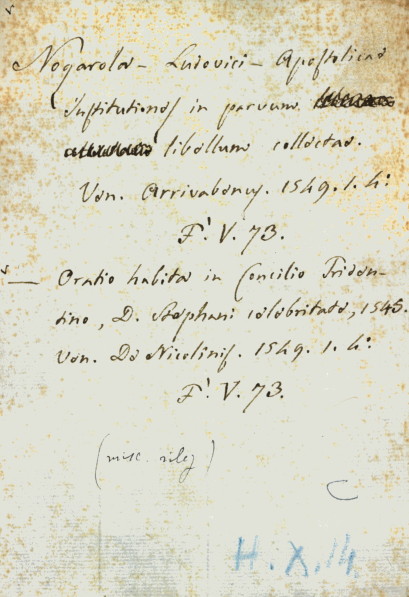 Nogarola - Ludovici - Apostolicae
Institutiones in parvum
libellum collectae.
Ven. Arrivabenus. 1549. 1. 4:
F! V. 73.
— Oratio habita in Concilio Triden-
tino, D. Stephani celebritate, 1545.
Ven. De Nicolinis. 1549. 1. 4:
F! V. 73.
(misc. rileg)
H. X. 14.